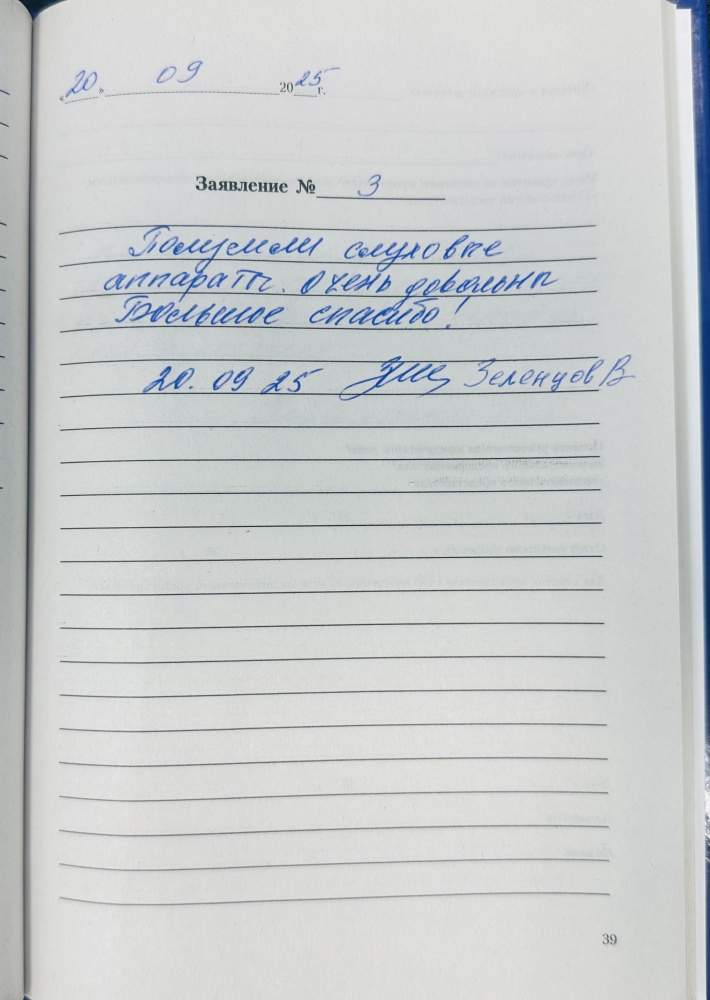 «20» 09 2025 г.
Заявление № 3
Получили слуховые
аппараты. Очень довольны
Большое спасибо!
20.09 25 Зеленцов В
39